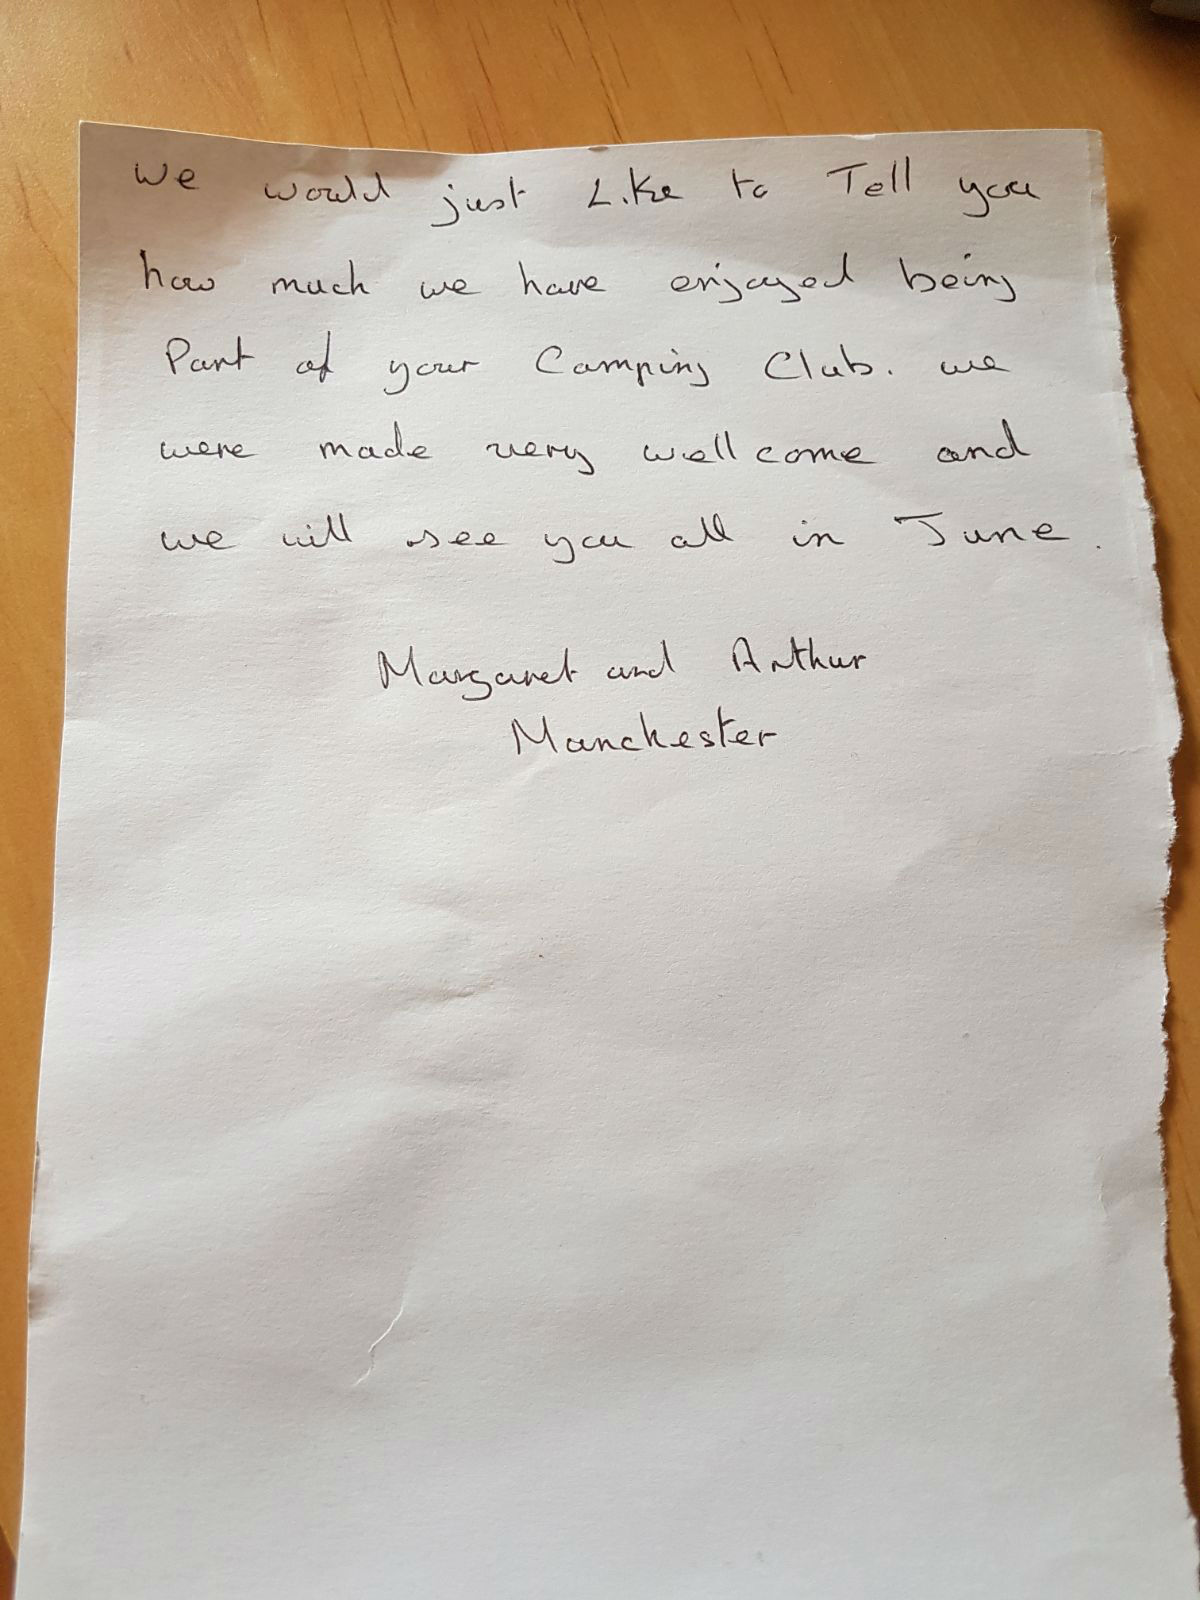 We would just Like to Tell you
how much we have enjoyed being
Part of your Camping Club. we
were made very wellcome and
we will see you all in June.
Margaret and Arthur
Manchester